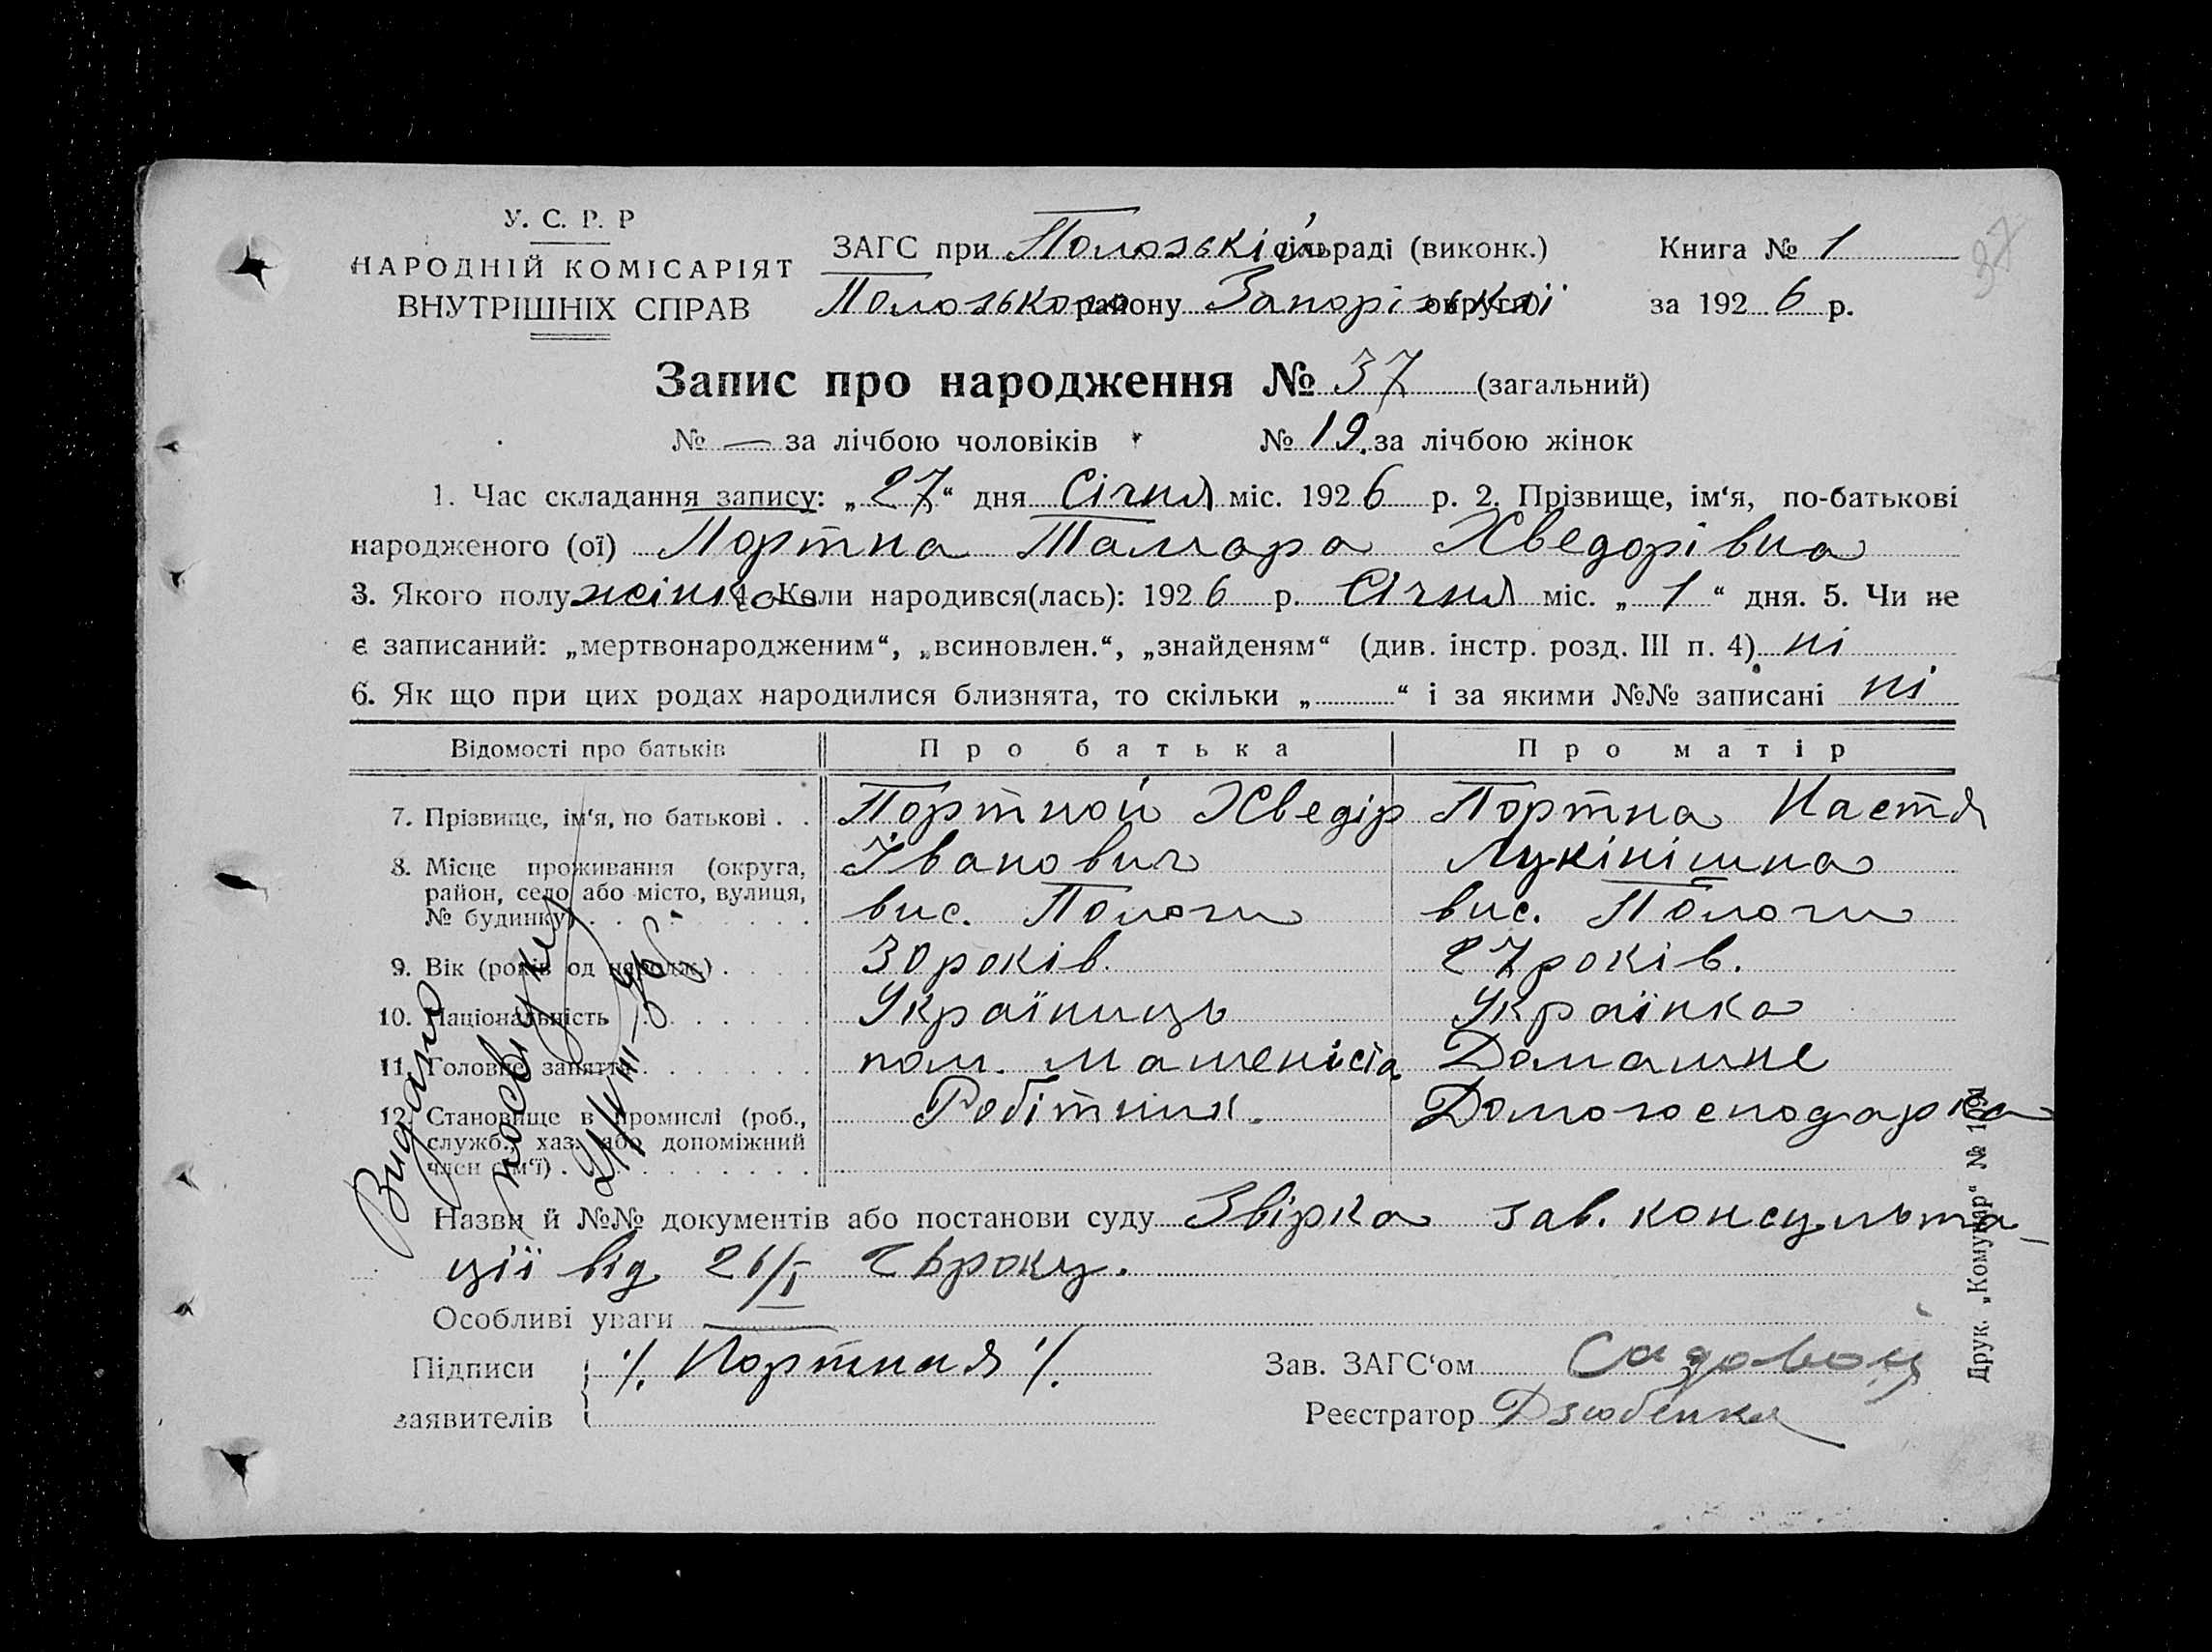 У. С. Р. Р
НАРОДНІЙ КОМІСАРІЯТ
ВНУТРІШНІХ СПРАВ
ЗАГС при Полозькій сільраді (виконк.)
Полозького району Запорізької округи
Книга № 1
за 1926 р.
37
Запис про народження № 37 (загальний)
№ — за лічбою чоловіків № 19 за лічбою жінок
1. Час складання запису: „27“ дня Січня міс. 1926 р. 2. Прізвище, ім‘я, по-батькові
народженого (ої) Портна Тамара Хведорівна
3. Якого полу жінка 4. Коли народився(лась): 1926 р. Січня міс. „1“ дня. 5. Чи не
є записаний: „мертвонародженим“, „всиновлен.“, „знайденям“ (див. інстр. розд. III п. 4) ні
6. Як що при цих родах народилися близнята, то скільки „......“ і за якими №№ записані ні
Відомості про батьків Про батька Про матір
7. Прізвище, ім‘я, по батькові . . Портной Хведір Портна Настя
Іванович Лукінішна
8. Місце проживання (округа,
район, село або місто, вулиця,
№ будинку) вис. Пологи вис. Пологи
9. Вік (років од народж.) 30 років. 27 років.
10. Національність Україниць Українка
11. Головне заняття пом. машеніста Домашне
12. Становище в промислі (роб.,
служб., хаз. або допоміжний
член сім‘ї) Робітник. Домогосподарка
Видано
Назви й №№ документів або постанови суду Звірка зав. консульта-
ції від 26/I 26 року.
Особливі уваги —
Підписи
заявителів
/. Портная /.
Зав. ЗАГС‘ом Садовой
Реєстратор Дзюбенко
Друк. „Комунар“ №